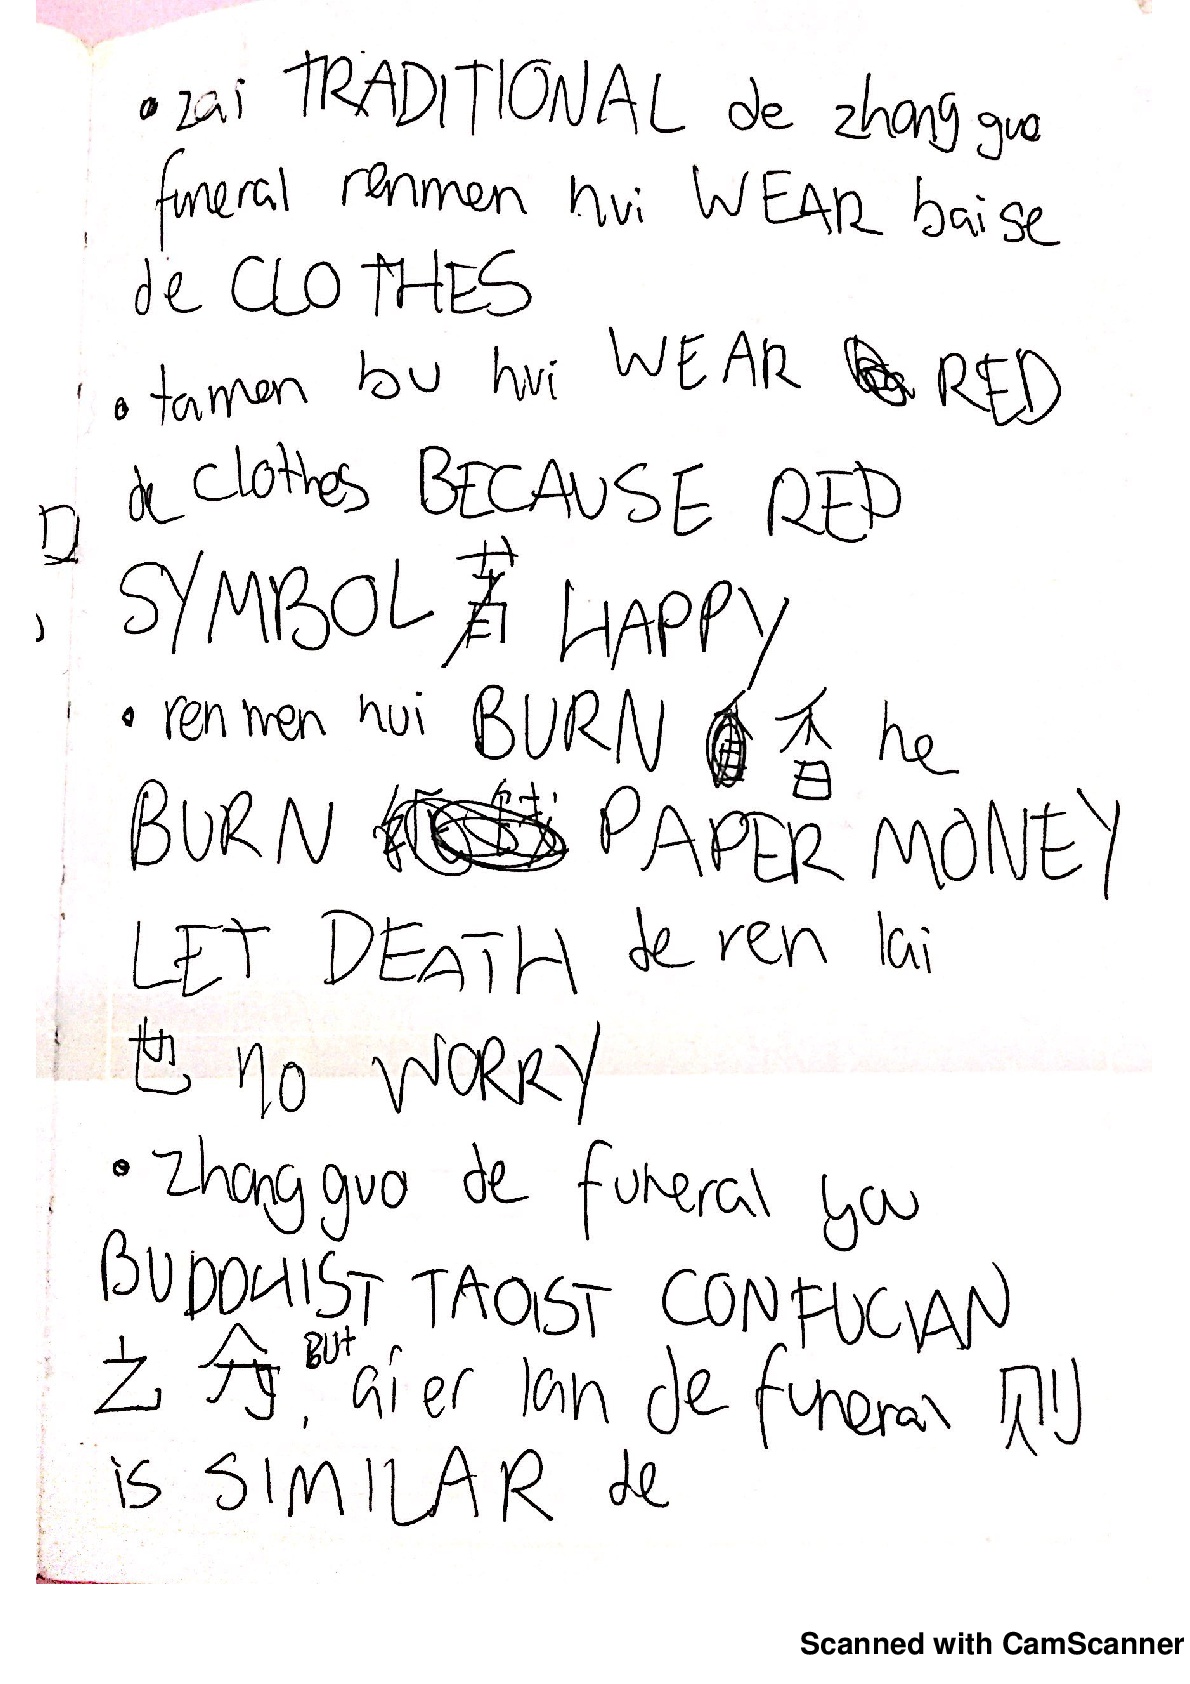 • zai TRADITIONAL de zhong guo
funeral renmen hui WEAR baise
de CLOTHES
• tamen bu hui WEAR RED
de clothes BECAUSE RED
SYMBOL 着 HAPPY
• renmen hui BURN 香 he
BURN PAPER MONEY
LET DEATH de ren lai
世 no WORRY
• Zhong guo de funeral you
BUDDHIST TAOIST CONFUCIAN
之分, BUT ai er lan de funeral 则
is SIMILAR de
Scanned with CamScanner